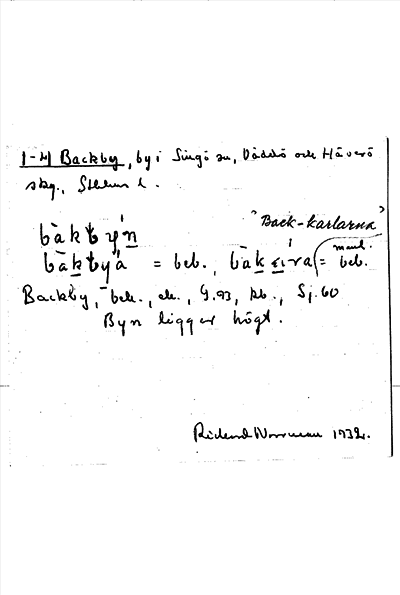 1-4 Backby, by i Singö sn, Väddö och Häverö
skg., Sthlms l.
"Back-karlarna"
bàkbyń
bàkbyá = beb., bàk
manl.
beb.
Backby, bek., ek., G.93, kb., Sj. 60
Byn ligger högt.
Rickard Norrman 1932.